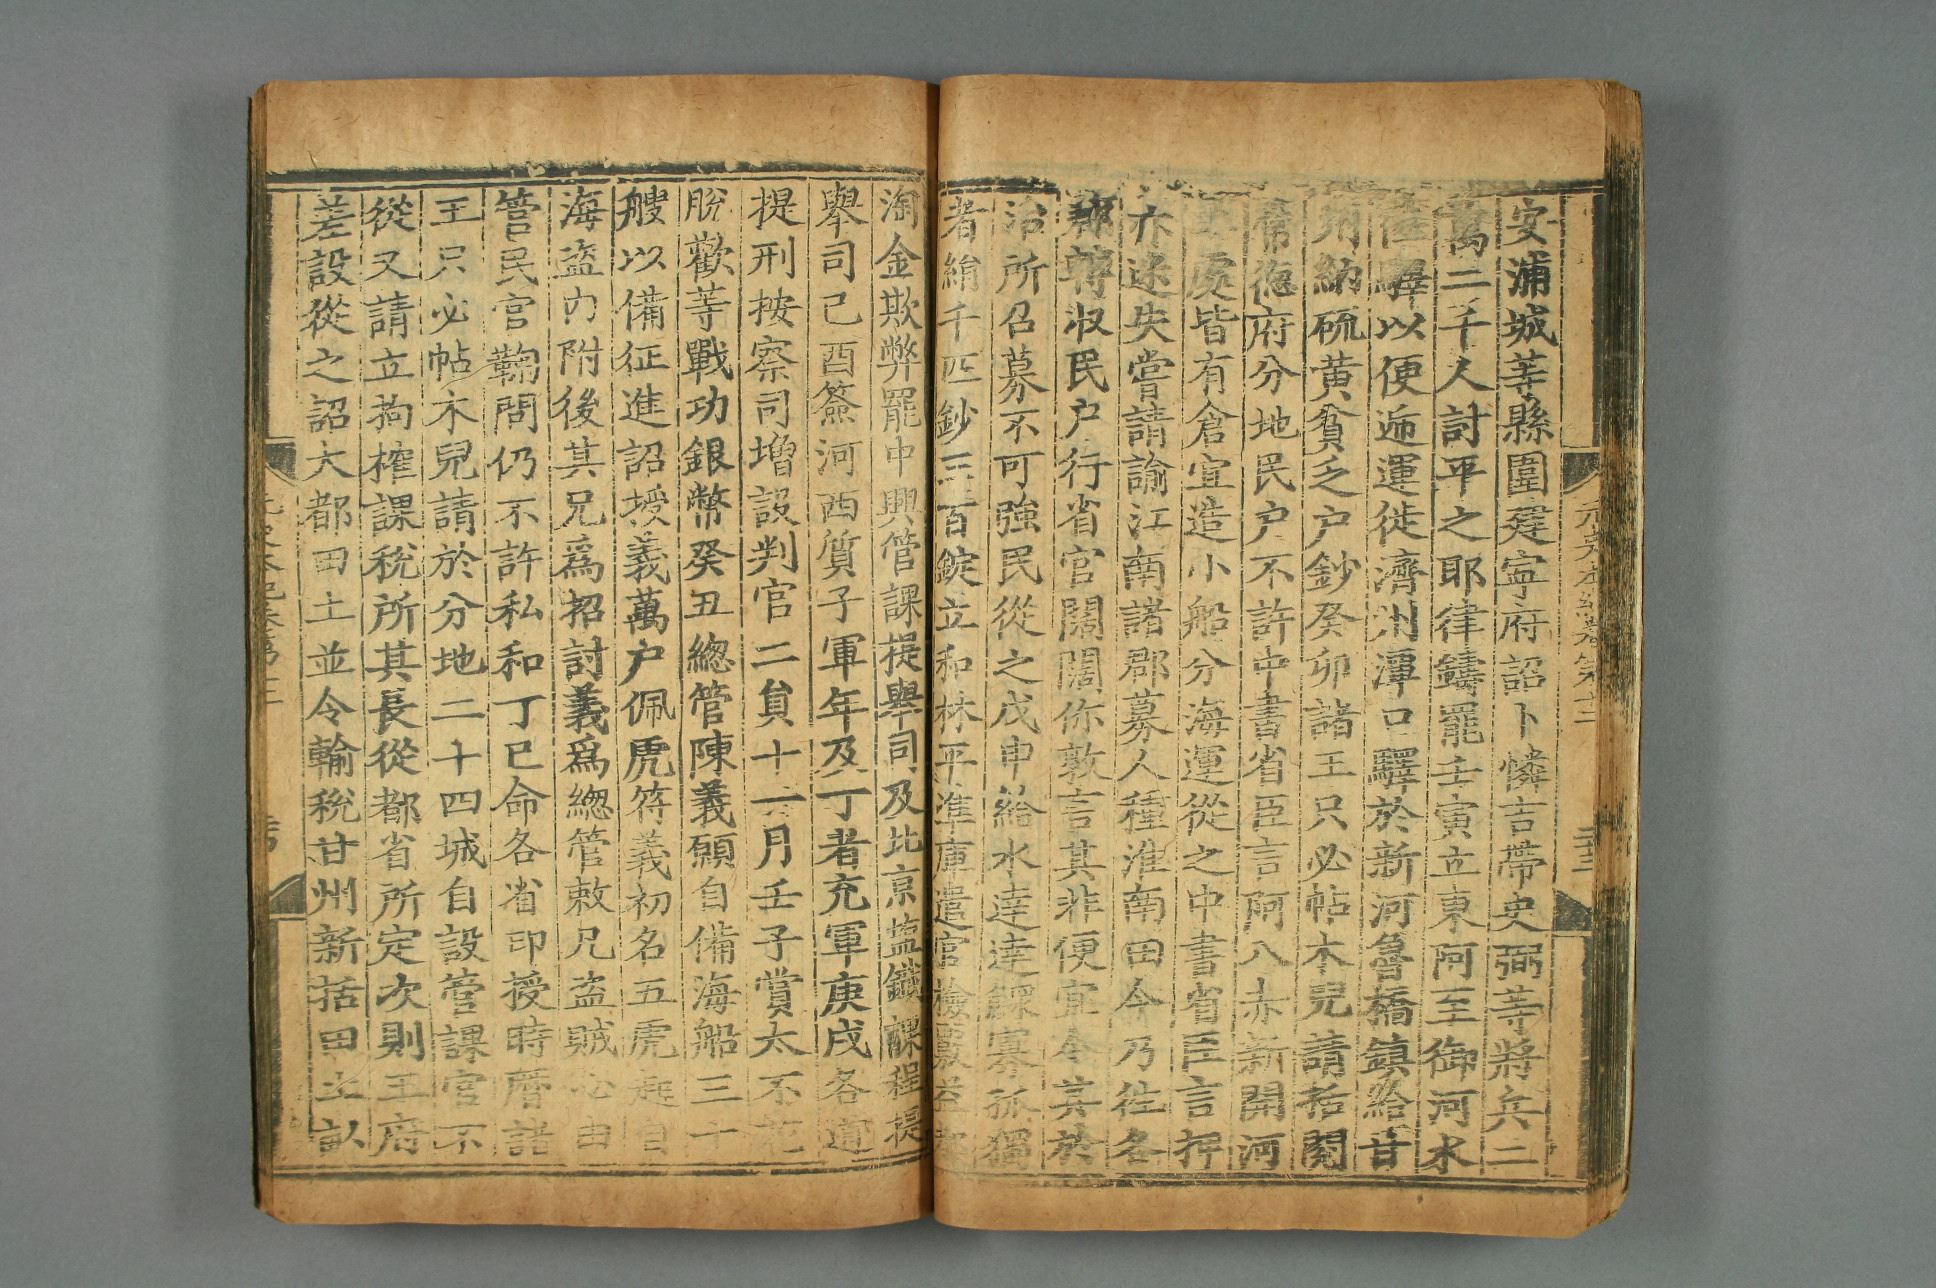 安浦城等縣圍建寧府詔卜憐吉帶史弼等將兵二
萬二千人討平之耶律鑄罷壬寅立東阿至御河水
陸驛以便逓運徙濟州潭口驛於新河魯橋鎮給甘
州納硫黃貧乏户鈔癸卯諸王只必帖木兒請括閱
常德府分地民户不許中書省臣言阿八赤新開河
二處皆有倉宜造小船分海運從之中書省臣言押
亦迷失嘗請諭江南諸郡募人種淮南田今乃往各
郡轉收民户行省官闊闊你敦言其非便宜令其於
治所召募不可強民從之戊申給水達達鰥寡孤獨
者絹千匹鈔三百錠立和林平準庫遣官檢覈益都
淘金欺弊罷中興管課提舉司及北京塩鐵課程提
舉司己酉簽河西質子軍年及丁者充軍庚戌各道
提刑按察司增設判官二員十一月壬子賞太不花
脫歡等戰功銀幣癸丑緫管陳義願自備海船三十
艘以備征進詔授義萬户佩虎符義初名五虎起自
海盜内附後其兄爲招討義爲緫管敕兄盜賊必由
管民官鞫問仍不許私和丁巳命各省印授時曆諸
王只必帖木兒請於分地二十四城自設管課官不
從又請立拘榷課稅所其長從都省所定次則王府
差設從之詔大都田土並令輸稅甘州新括田土畝